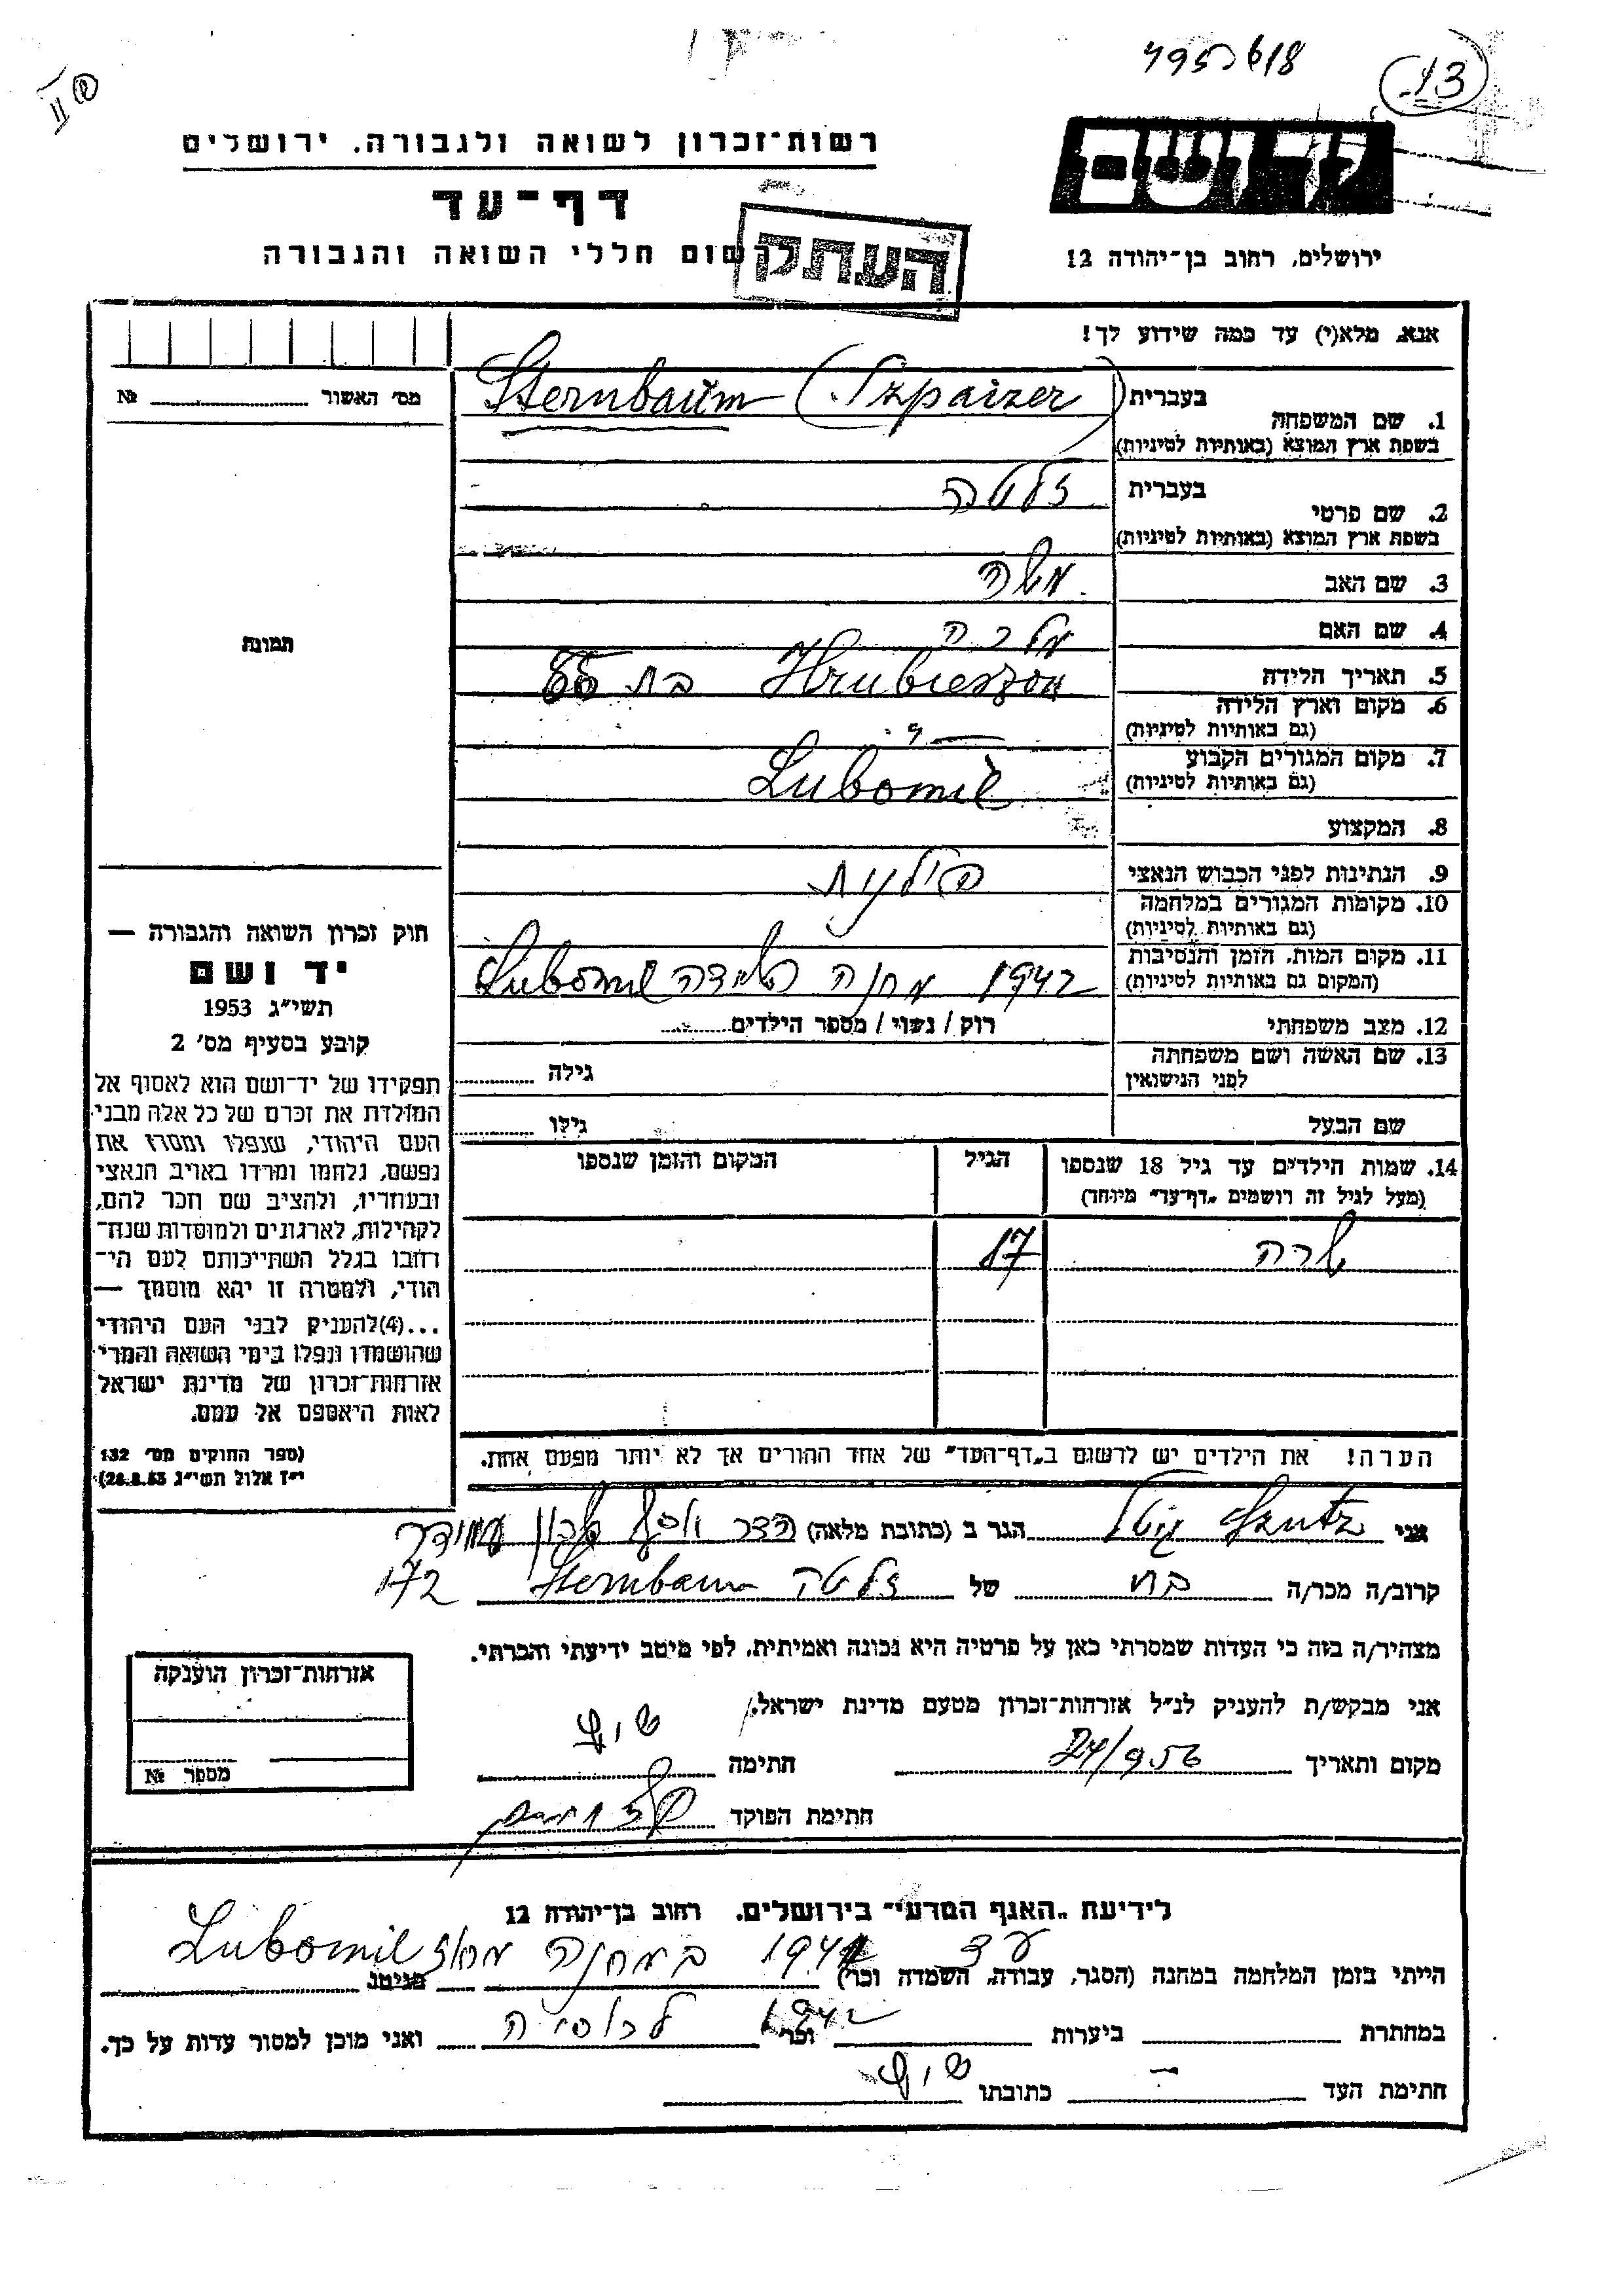 7953618
13
II
יד ושם
ירושלים, רחוב בן־יהודה 12
רשות־זכרון לשואה ולגבורה, ירושלים
דף־עד
לרשום חללי השואה והגבורה
העתק
אנא, מלא(י) עד כמה שידוע לך!
מס׳ האשור № 
תמונה
1. שם המשפחה בעברית Sternbaum (Szpaizer)
בשפת ארץ המוצא (באותיות לטיניות)
2. שם פרטי בעברית זלטה
בשפת ארץ המוצא (באותיות לטיניות)
3. שם האב משה
4. שם האם מלכה
5. תאריך הלידה Hrubieszow בת 55
6. מקום וארץ הלידה
(גם באותיות לטיניות)
7. מקום המגורים הקבוע Lubomil
(גם באותיות לטיניות)
8. המקצוע
9. הנתינות לפני הכבוש הנאצי פולנית
10. מקומות המגורים במלחמה
(גם באותיות לטיניות)
11. מקום המות, הזמן והנסיבות 1942 מחנה השמדה Lubomil
(המקום גם באותיות לטיניות)
12. מצב משפחתי רוק / נשוי / מספר הילדים
13. שם האשה ושם משפחתה גילה
לפני הנישואין
שם הבעל גילו
14. שמות הילדים עד גיל 18 שנספו הגיל המקום והזמן שנספו
(מעל לגיל זה רושמים „דף־עד״ מיוחד)
שרה 17
הערה! את הילדים יש לרשום ב„דף־העד״ של אחד ההורים אך לא יותר מפעם אחת.
חוק זכרון השואה והגבורה —
יד ושם
תשי״ג 1953
קובע בסעיף מס׳ 2
תפקידו של יד־ושם הוא לאסוף אל
המולדת את זכרם של כל אלה מבני
העם היהודי, שנפלו ומסרו את
נפשם, נלחמו ומרדו באויב הנאצי
ובעוזריו, ולהציב שם וזכר להם,
לקהילות, לארגונים ולמוסדות שנח־
רבו בגלל השתייכותם לעם הי־
הודי, ולמטרה זו יהא מוסמך —
...(4) להעניק לבני העם היהודי
שהושמדו ונפלו בימי השואה והמרי
אזרחות־זכרון של מדינת ישראל
לאות היאספם אל עמם.
(ספר החוקים מס׳ 132
י״ז אלול תשי״ג 28.8.53)
אני גיטל הגר ב (כתובת מלאה) עמידר
172
קרוב/ה מכר/ה בת של זלטה Sternbaum
מצהיר/ה בזה כי העדות שמסרתי כאן על פרטיה היא נכונה ואמיתית, לפי מיטב ידיעתי והכרתי.
אני מבקש/ת להעניק לנ״ל אזרחות־זכרון מטעם מדינת ישראל.
מקום ותאריך 24/9 56 חתימה
חתימת הפוקד
אזרחות־זכרון הוענקה
מספר №
לידיעת „האגף המדעי״ בירושלים, רחוב בן־יהודה 12
הייתי בזמן המלחמה במחנה (הסגר, עבודה, השמדה וכר׳) עד 1941 במחנה Lubomil
במחתרת ביערות וכר׳ 1942 לרוסיה ואני מוכן למסור עדות על כך.
חתימת העד כתובתו